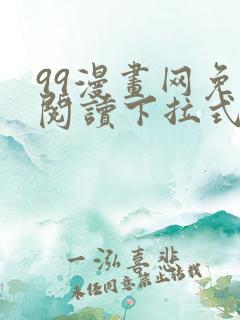 99漫畫网免
閱讀下拉式
一泓喜悲
未经同意禁止转载